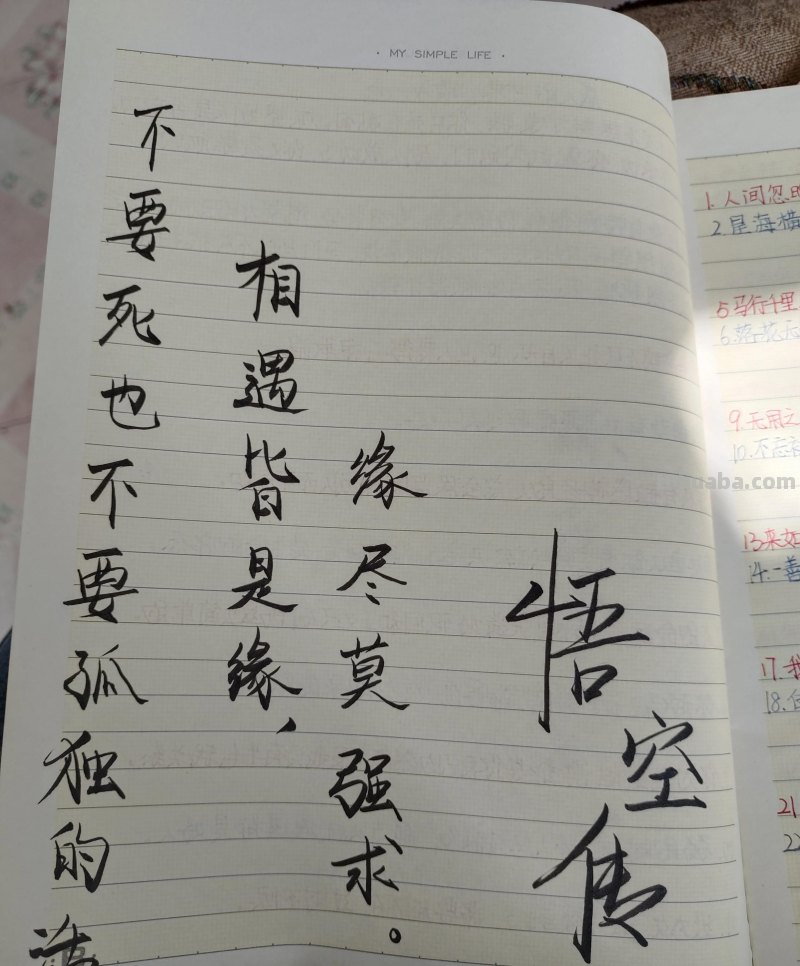 · MY SIMPLE LIFE ·
不要死也不要孤独的
相遇皆是缘，
缘尽莫强求。
悟空传
1.人间忽
2.星海横
5.马行千里
6.落花天
9.无用之
10.不忘初
13.来如
14.一善
17.我
18.白
21
22
aba.com